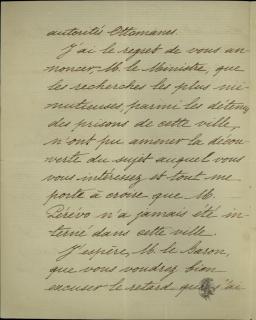 autorités Ottomanes.
J'ai le regret de vous an-
noncer, M. le Ministre, que
les recherches les plus mi-
nutieuses, parmi les détenus
des prisons de cette ville,
n'ont pu amener la décou-
verte du sujet auquel vous
vous intéressez et tout me
porte à croire que M.
n'a jamais été in-
terné dans cette ville.
J'espère, M. le Baron,
que vous voudrez bien
excuser le retard que j'ai